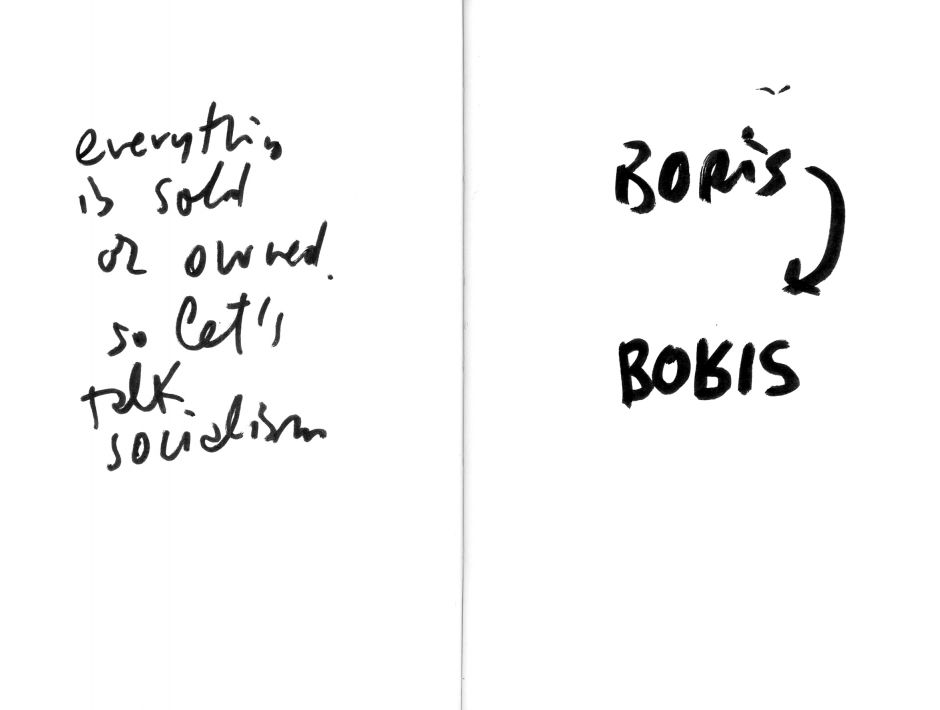 everything
is sold
or owned.
so let's
talk.
socialism
BORiS
BORIS